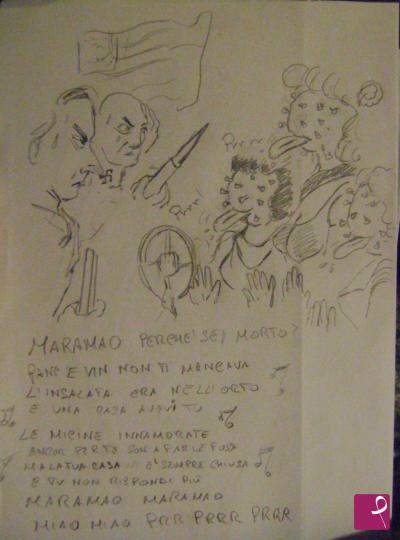 Prrrr
Prrr!
MARAMAO PERCHE' SEI MORTO?
PANE E VIN NON TI MANCAVA
L'INSALATA ERA NELL'ORTO
E UNA CASA AVEVI TU
LE MICINE INNAMORATE
ANCOR PER TE SON A FAR LE FUSA
MA LA TUA CASA E' SEMPRE CHIUSA
E TU NON RISPONDI PIÙ
MARAMAO MARAMAO
MIAO MIAO PRR PRRR PRRR